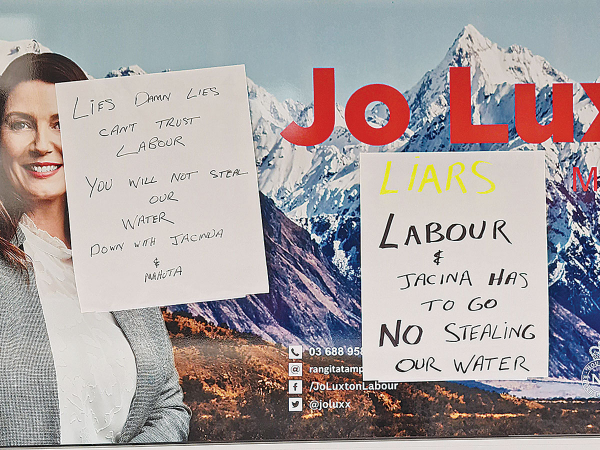 Jo Lux
M
LIES DAMN LIES
CAN'T TRUST
LABOUR
YOU WILL NOT STEAL
OUR
WATER
DOWN WITH JACINDA
&
MAHUTA
LIARS
LABOUR
&
JACINA HAS
TO GO
NO STEALING
OUR WATER
03 688 95
rangitatamp
/JoLuxtonLabour
@joluxx